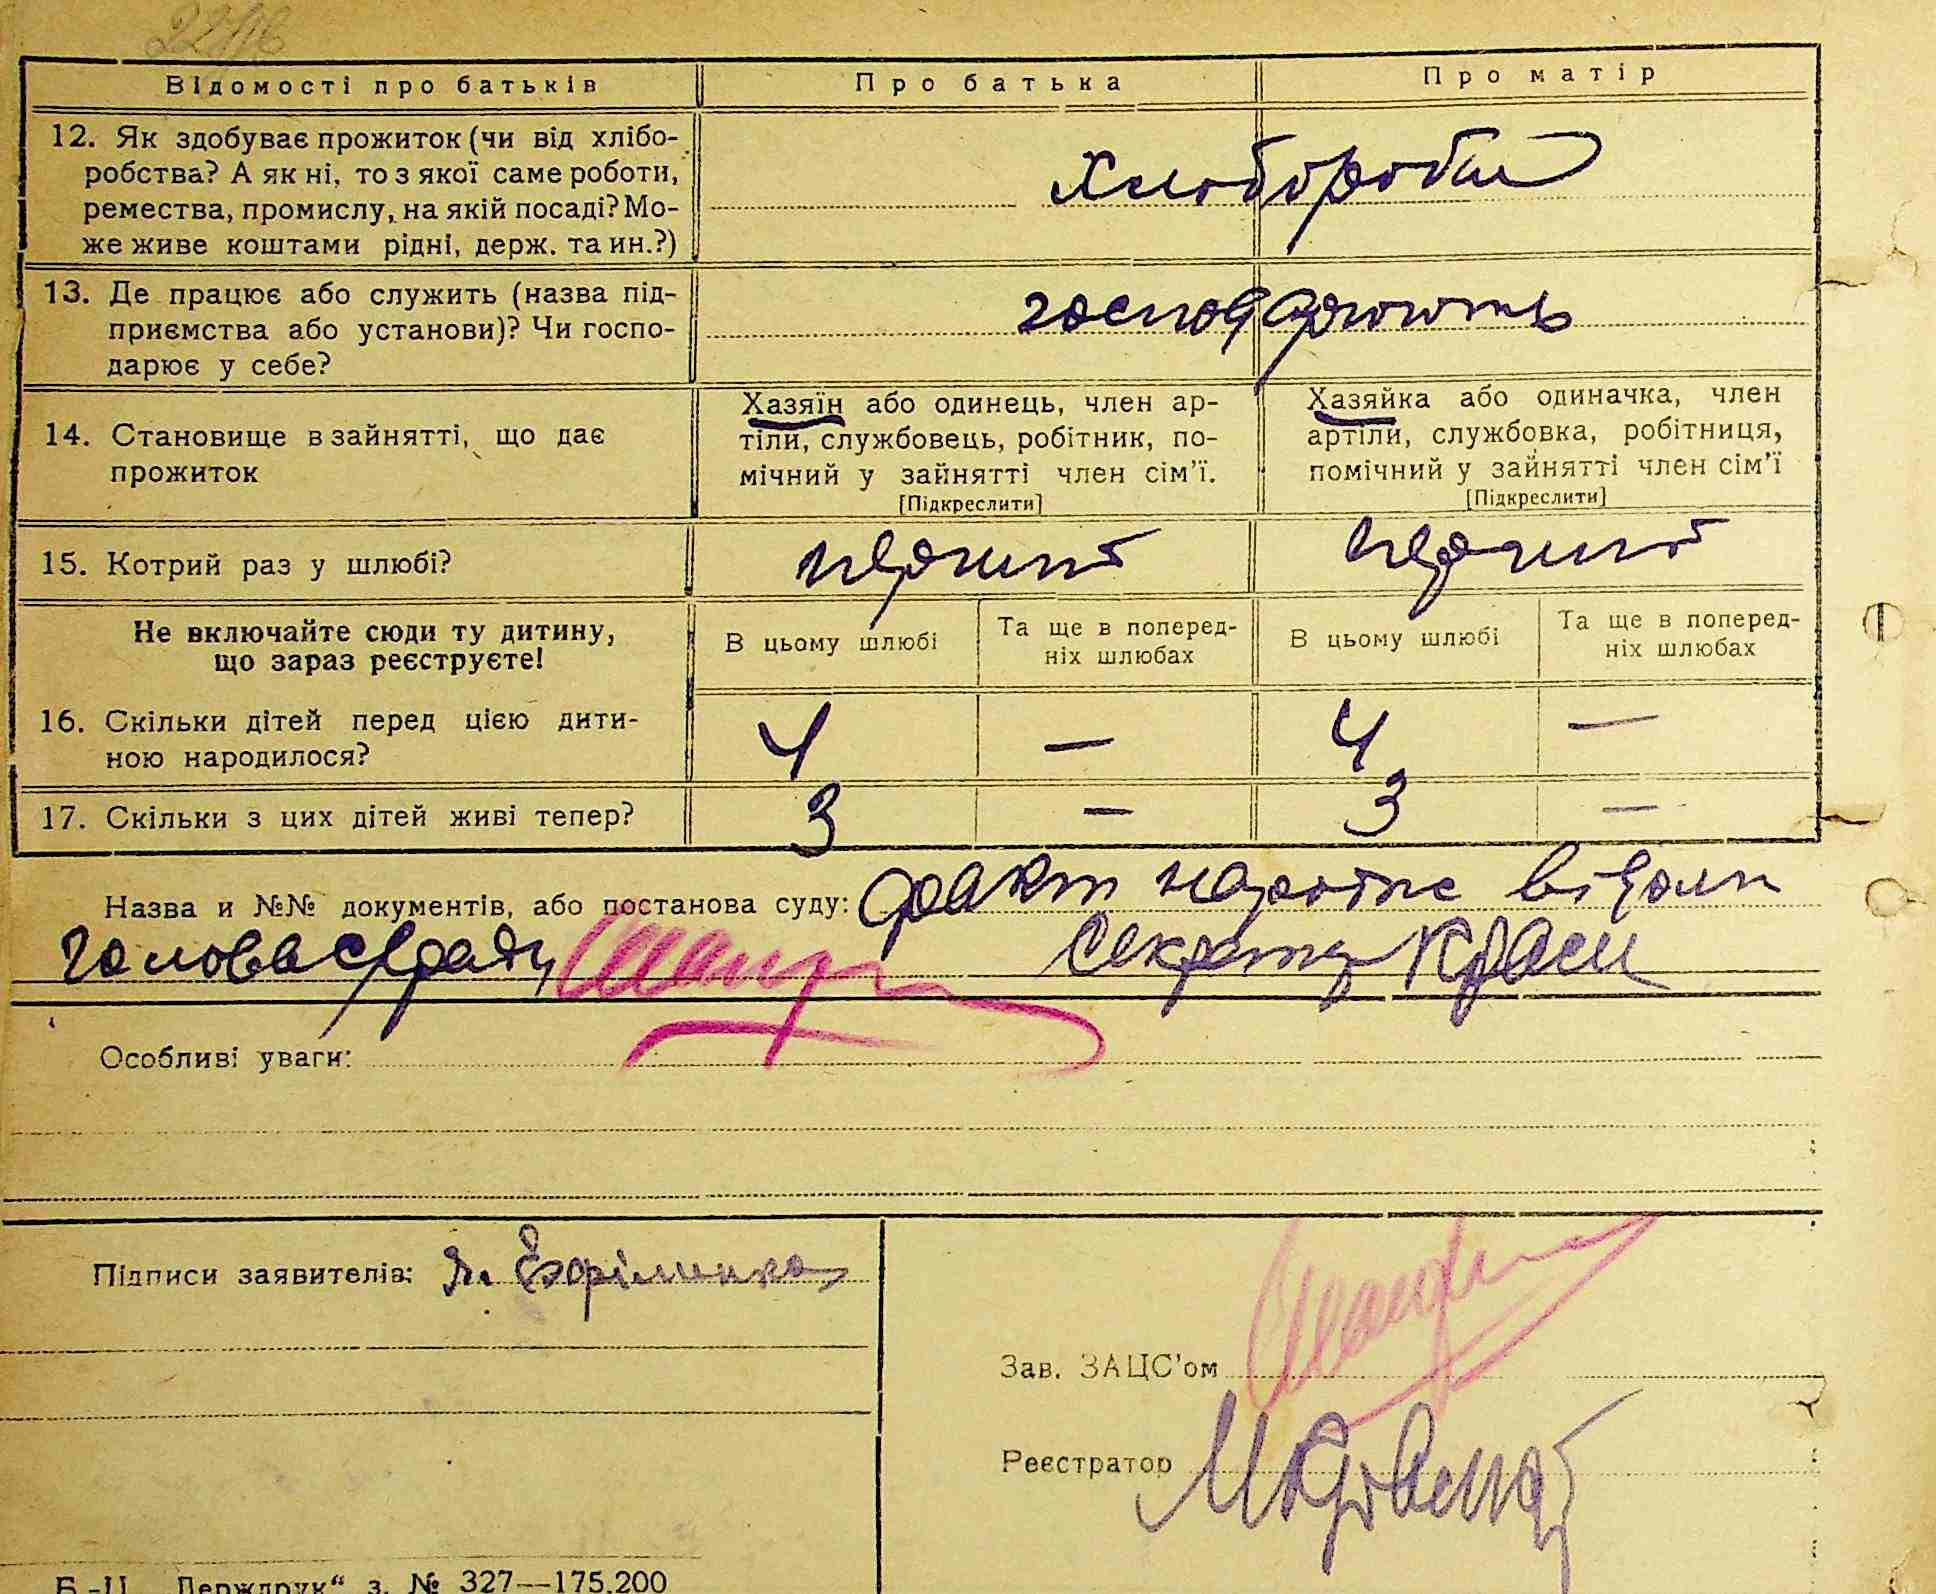 Відомості про батьків
Про батька
Про матір
12. Як здобуває прожиток (чи від хлібо-
робства? А як ні, то з якої саме роботи,
ремества, промислу, на якій посаді? Мо-
же живе коштами рідні, держ. та ин.?)
хлібороби
13. Де працює або служить (назва під-
приємства або установи)? Чи госпо-
дарює у себе?
господарюють
14. Становище в зайнятті, що дає
прожиток
Хазяїн або одинець, член ар-
тіли, службовець, робітник, по-
мічний у зайнятті член сім'ї.
[Підкреслити]
Хазяйка або одиначка, член
артіли, службовка, робітниця,
помічний у зайнятті член сім'ї
[Підкреслити]
15. Котрий раз у шлюбі?
перший
перший
Не включайте сюди ту дитину,
що зараз реєструєте!
В цьому шлюбі
Та ще в поперед-
ніх шлюбах
В цьому шлюбі
Та ще в поперед-
ніх шлюбах
16. Скільки дітей перед цією дити-
ною народилося?
4 — 4 —
17. Скільки з цих дітей живі тепер?
3 — 3 —
Назва и №№ документів, або постанова суду: факт народже відоми
голова с/ради секретар
Особливі уваги:
Підписи заявителів:
Зав. ЗАЦС'ом
Реєстратор
Б.-Ц. „Держдрук“ з. № 327—175.200